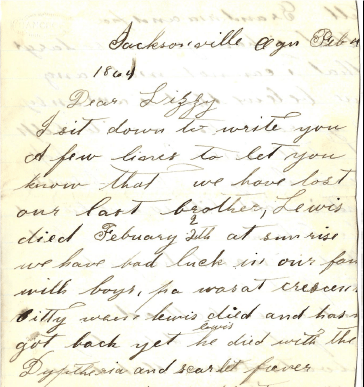 Jacksonville Ogn Feb
1864
Dear Lizzy
I sit down to write you
A few lines to let you
know that we have lost
our last brother, Lewis
died Febuary 2th at sunrise
we have bad luck in our fam
with boys, pa was at crescen
Citty when lewis died and has
got back yet lewis he died with the
Dyptheria and scarlet feever